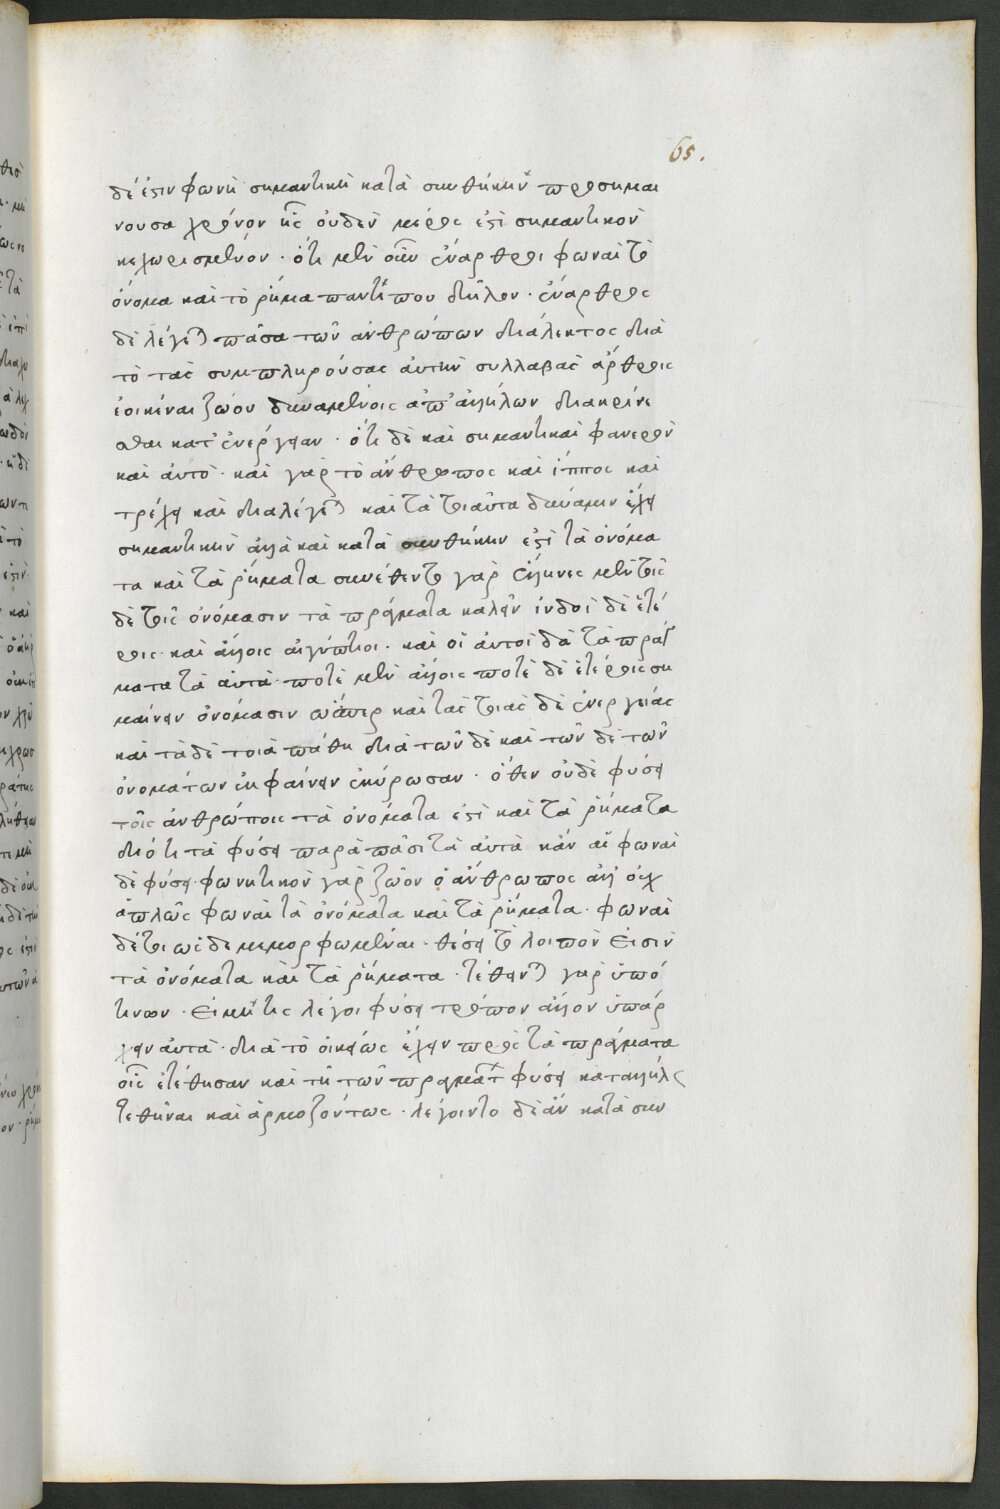 65.
δέ ἐστιν φωνὴ σημαντικὴ κατὰ συνθήκην προσημαι
νουσα χρόνον ἧς οὐδὲν μέρος ἐστὶ σημαντικὸν
κεχωρισμένον · ὅτι μὲν οὖν ἔναρθροι φωναὶ τὸ
ὄνομα καὶ τὸ ῥῆμα παντί που δῆλον · ἔναρθρος
δὲ λέγεται πᾶσα τῶν ἀνθρώπων διάλεκτος διὰ
τὸ τὰς συμπληρούσας αὐτὴν συλλαβὰς ἄρθροις
ἐοικέναι ζώου δυναμένοις ἀπ' ἀλλήλων διακρίνε
σθαι κατ' ἐνέργειαν · ὅτι δὲ καὶ σημαντικαὶ φανερὸν
καὶ αὐτό · καὶ γὰρ τὸ ἄνθρωπος καὶ ἵππος καὶ
τρέχει καὶ διαλέγεται καὶ τὰ τοιαῦτα δύναμιν ἔχει
σημαντικὴν ἀλλὰ καὶ κατὰ συνθήκην ἐστὶ τὰ ὀνόμα
τα καὶ τὰ ῥήματα συνέθεντο γὰρ ἕλληνες μὲν τοῖς
δὲ τοῖς ὀνόμασιν τὰ πράγματα καλεῖν ἰνδοὶ δὲ ἑτέ
ροις καὶ ἄλλοις αἰγύπτιοι · καὶ οἱ αὐτοὶ δὲ τὰ πράγ
ματα τὰ αὐτὰ ποτὲ μὲν ἄλλοις ποτὲ δὲ ἑτέροις ση
μαίνειν ὀνόμασιν ὥσπερ καὶ τὰς τοιάς δε ἐνεργείας
καὶ τὰ δὲ τοιὰ πάθη διὰ τῶν δὲ καὶ τῶν δὲ τῶν
ὀνομάτων ἐμφαίνειν ἐκύρωσαν · ὅθεν οὐδὲ φύσει
τοῖς ἀνθρώποις τὰ ὀνόματα ἐστὶ καὶ τὰ ῥήματα
διότι τὰ φύσει παρὰ πᾶσι τὰ αὐτὰ κἂν αἱ φωναὶ
δὲ φύσει · φωνητικὸν γὰρ ζῶον ὁ ἄνθρωπος ἀλλ' οὐχ
ἁπλῶς φωναὶ τὰ ὀνόματα καὶ τὰ ῥήματα · φωναὶ
δέ τοι ὡς δε μεμορφωμέναι · θέσει τὸ λοιπὸν εἰσὶν
τὰ ὀνόματα καὶ τὰ ῥήματα · τέθειται γὰρ ὑπό
τινων · εἰ μή τις λέγοι φύσει τρόπον ἄλλον ὑπάρ
χειν αὐτὰ · διὰ τὸ οἰκείως ἔχειν πρὸς τὰ πράγματα
οἷς ἐτέθησαν καὶ τῇ τῶν πραγμάτων φύσει καταλλήλως
τεθῆναι καὶ ἁρμοζόντως · λέγοιντο δὲ ἂν κατὰ συν